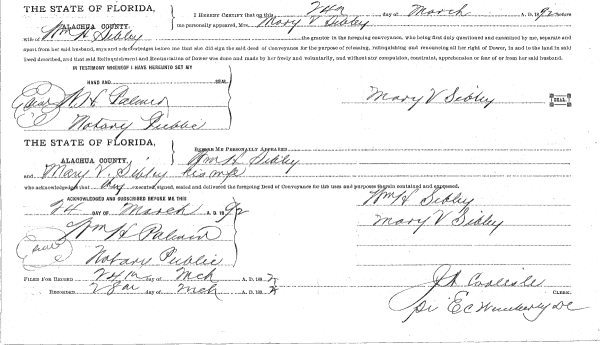 THE STATE OF FLORIDA,
ALACHUA COUNTY.
I HEREBY CERTIFY that on this 24th day of March A. D. 1892 before
me personally appeared, Mrs. Mary V Sibley
wife of Wm H Sibley the grantor in the foregoing conveyance, who being first duly questioned and examined by me, separate and
apart from her said husband, says and acknowledges before me that she did sign the said deed of Conveyance for the purpose of releasing, relinquishing and renouncing all her right of Dower, in and to the land in said
Deed described, and that said Relinquishment and Renunciation of Dower was done and made by her freely and voluntarily, and without any compulsion, constraint, apprehension or fear of or from her said husband.
IN TESTIMONY WHEREOF I HAVE HEREUNTO SET MY
HAND AND SEAL
W. H. Palmer
Notary Public
Mary V Sibley SEAL
THE STATE OF FLORIDA,
ALACHUA COUNTY,
BEFORE ME PERSONALLY APPEARED Wm H. Sibley
and Mary V. Sibley his wife
who acknowledged that they executed, signed, sealed and delivered the foregoing Deed of Conveyance for the uses and purposes therein contained and expressed.
ACKNOWLEDGED AND SUBSCRIBED BEFORE ME THIS
24 DAY OF March A. D. 1892
Wm H Palmer
Notary Public
Wm H Sibley
Mary V Sibley
FILED FOR RECORD 24th day of Mch A. D. 1892
RECORDED 28 day of Mch A. D. 189
J A Carlisle CLERK.
E C Wimberly DC